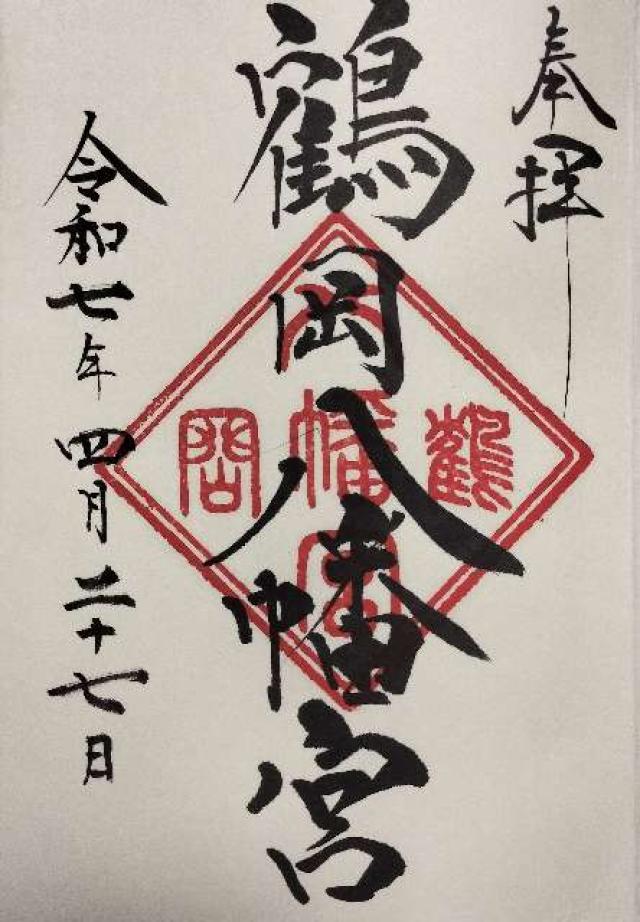 奉拝
鶴岡八幡宮
鶴
八幡宮
岡
令和七年四月二十七日